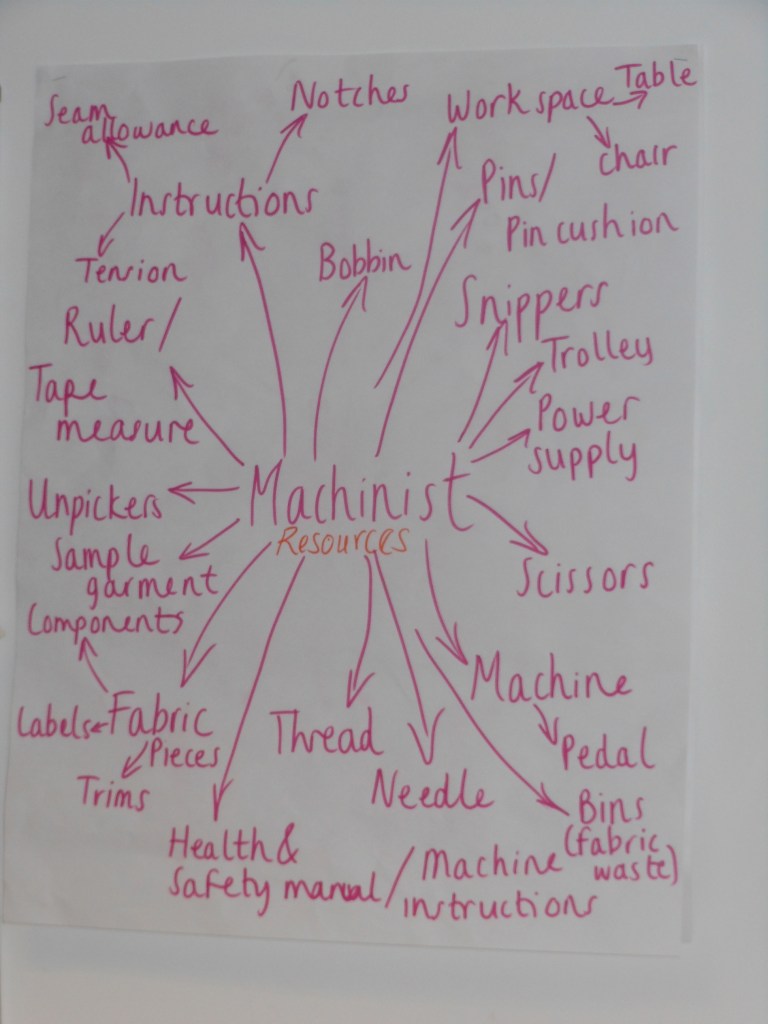 Seam
allowance
Notches
Work space
Table
chair
Instructions
Pins/
Pin cushion
Tension
Bobbin
Snippers
Ruler/
Trolley
Tape
measure
Power
supply
Unpickers
Machinist
Resources
Sample
garment
Scissors
Components
Machine
Labels
Fabric
Pieces
Thread
Pedal
Trims
Needle
Bins
(fabric
waste)
Health &
Safety manual/
Machine
instructions